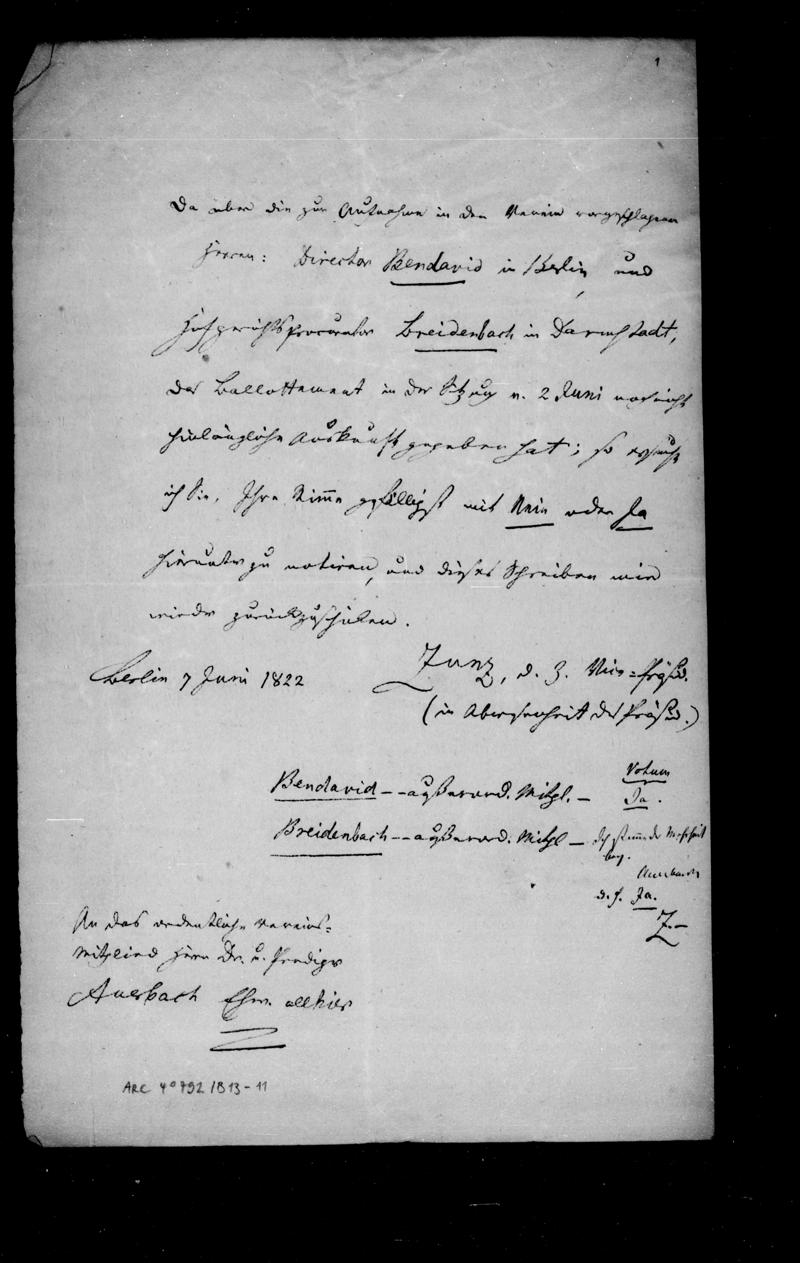 1
Da über die zur Aufnahme in den Verein vorgeschlagenen
Herren: Director Bendavid in Berlin und
Hofgerichtsprocurator Breidenbach in Darmstadt,
das Ballottement in der Sitzung v. 2 Juni noch nicht
hinlängliche Auskunft gegeben hat; so ersuche
ich Sie, Ihre Stimme gefälligst mit Nein oder Ja
hierunter zu notiren, und dieses Schreiben mir
wieder zurückzuschicken.
Berlin 7 Juni 1822
Zunz, d. Z. Vice-Präsid.
(in Abwesenheit des Präsid.)
Votum
Bendavid -- außerord. Mitgl. - Ja.
Breidenbach -- außerord. Mitgl - Ich stimme der Mehrheit
bey.
Auerbach
d. h. Ja.
Z-
An das ordentliche Vereins-
mitglied Herrn Dr. u. Prediger
Auerbach Ehrw. allhier
ARC 4° 792/B13-11